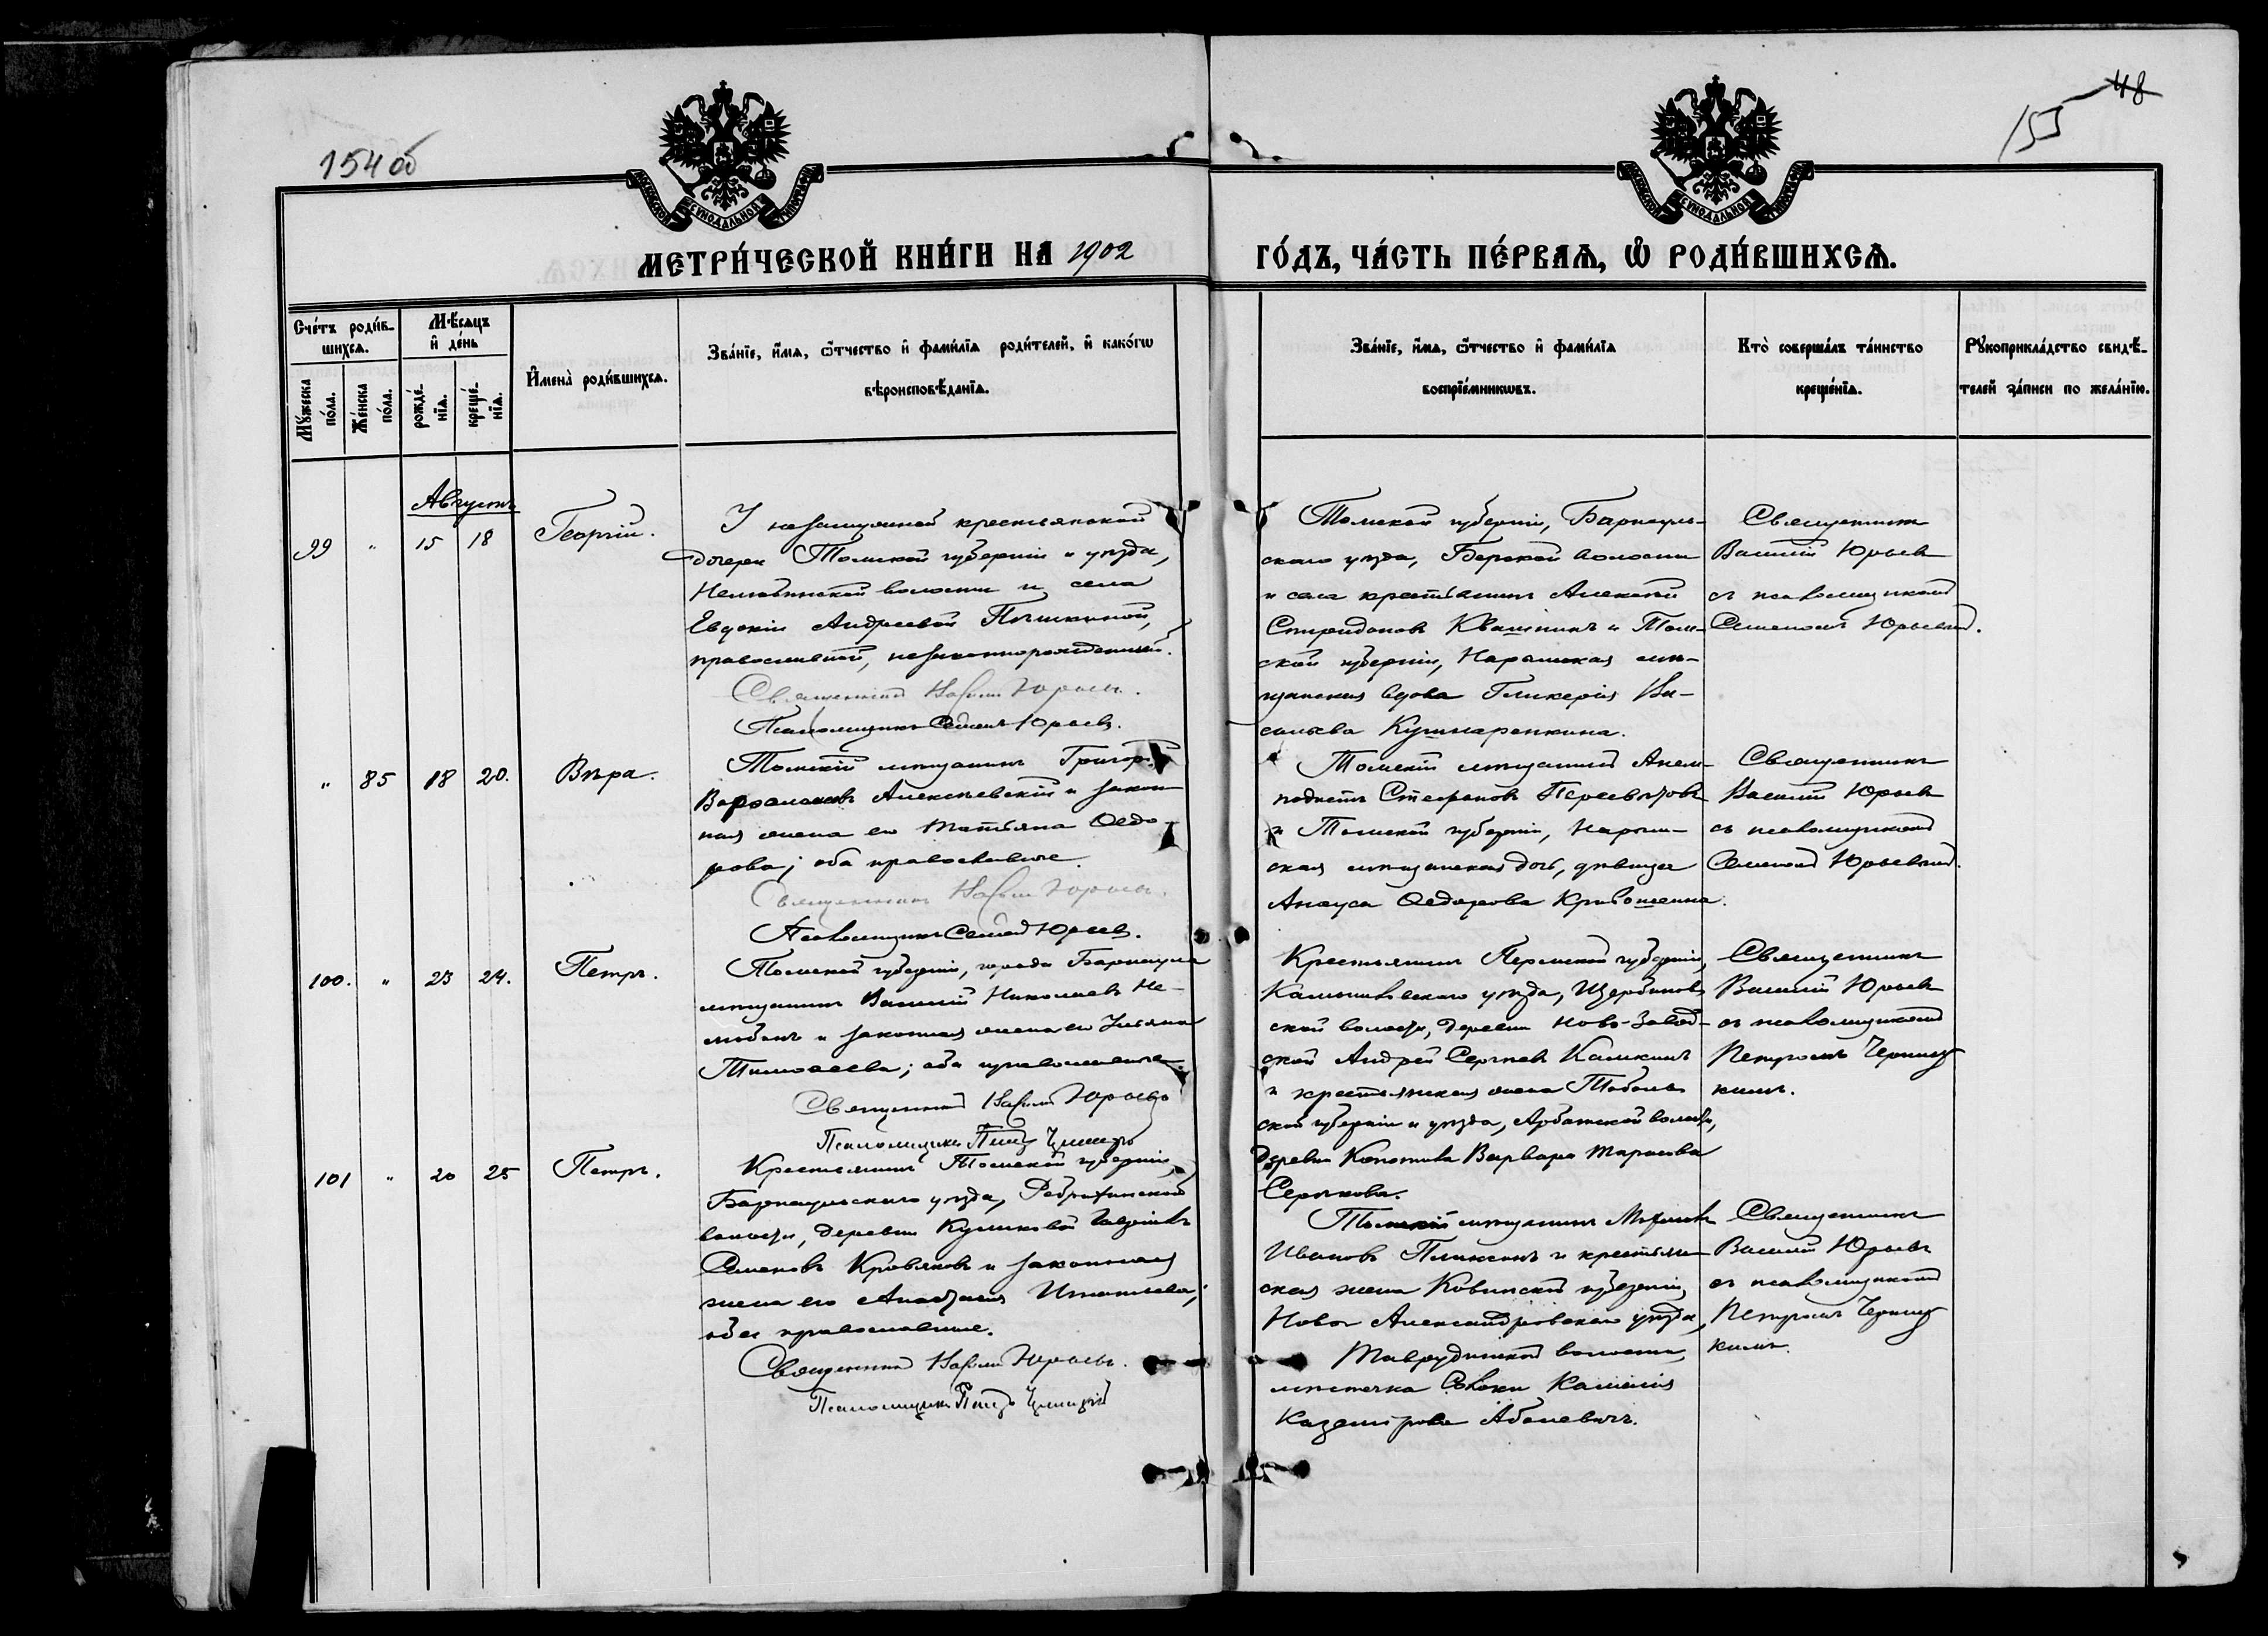 154 об
155
48
МЕТРИ́ЧЕСКОЙ КНИ́ГИ НА 1902
ГО́ДЪ, ЧА́СТЬ ПЕ́РВАѦ, Ѡ҆ РОДИ́ВШИХСѦ.
Сче́тъ роди́в-
шихсѧ.
Мѣ́сѧцъ
и҆ де́нь
Мꙋ́жеска
по́ла.
Же́нска
по́ла.
рожде́-
нїѧ.
креще́-
нїѧ.
И҆мена̀ роди́вшихсѧ.
Зва́нїе, и҆́мѧ, ѻ҆́тчество и҆ фами́лїѧ роди́телей, и҆ како́гѡ
вѣроисповѣ́данїѧ.
Зва́нїе, и҆́мѧ, ѻ҆́тчество и҆ фами́лїѧ
воспрїе́мникѡвъ.
Кто̀ соверша́лъ та́инство
креще́нїѧ.
Рꙋкоприкла́дство свидѣ́-
телей за́писи по жела́нїю.
Августъ
99 " 15 18 Георгій.
У незамужней крестьянской
дочери Томской губерніи и уѣзда,
Нелюбинской волости и села
Евдокіи Андреевой Пышкиной,
православной, незаконнорожденный.
Священникъ Василій Юрьевъ.
Псаломщикъ Семенъ Юрьевъ.
Томской губерніи, Барнауль-
скаго уѣзда, Бердской волости
и села крестьянинъ Алексѣй
Спиридоновъ Квашнинъ и Том-
ской губерніи, Нарымская мѣ-
щанская вдова Гликерія Ва-
сильева Кушнаренкина.
Священникъ
Василій Юрьевъ
съ псаломщикомъ
Семеномъ Юрьевымъ.
" 85 18 20. Вѣра.
Томскій мѣщанинъ Григорій
Варѳаломеевъ Алексѣевскій и закон
ная жена его Татьяна Ѳедо-
рова; оба православные.
Священникъ Василій Юрьевъ.
Псаломщикъ Семенъ Юрьевъ.
Томскій мѣщанинъ Анем-
подистъ Стефановъ Пересвѣтовъ
и Томской губерніи, Нарым-
ская мѣщанская дочь, дѣвица
Ѳедорова Кривошеина.
Священникъ
Василій Юрьевъ
съ псаломщикомъ
Семеномъ Юрьевымъ.
100. " 23 24. Петръ.
Томской губерніи, города Барнаула
мѣщанинъ Василій Николаевъ Не-
любинъ и законная жена его Ульяна
Тимоѳеева; оба православные.
Священникъ Василій Юрьевъ
Псаломщикъ Петръ
Крестьянинъ Пермской губерніи,
Камышловскаго уѣзда, Щербаков
ской волости, деревни Ново-Завод-
ской Андрей Сергѣевъ Калкинъ
и крестьянская жена Тоболь
ской губерніи и уѣзда, волости,
деревни Варвара Тарасова
Серкова.
Священникъ
Василій Юрьевъ
съ псаломщикомъ
Петромъ
кимъ.
101 " 20 25 Петръ.
Крестьянинъ Томской губерніи
Барнаульскаго уѣзда, Ребрихинской
волости, деревни Куликовой Гавріилъ
Семеновъ Кровяковъ и законная
жена его Анастасія Игнатьева;
оба православные.
Священникъ Василій Юрьевъ.
Псаломщикъ Петръ
Томскій мѣщанинъ Михаилъ
Ивановъ Плаксинъ и крестьян-
ская жена Ковенской губерніи,
Ново Александровскаго уѣзда,
волости,
мѣстечка Камилія
Каземірова Абалевичъ.
Священникъ
Василій Юрьевъ
съ псаломщикомъ
Петромъ
кимъ.